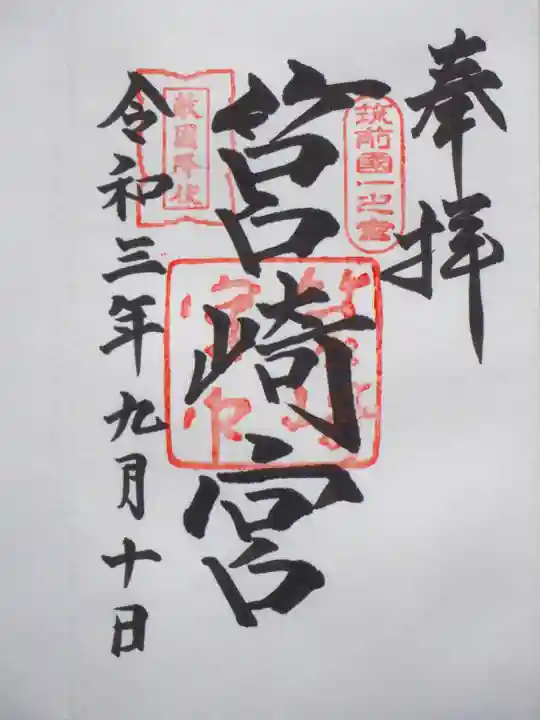 奉拝
筑前國一之宮
筥崎宮
敵国降伏
令和三年九月十日